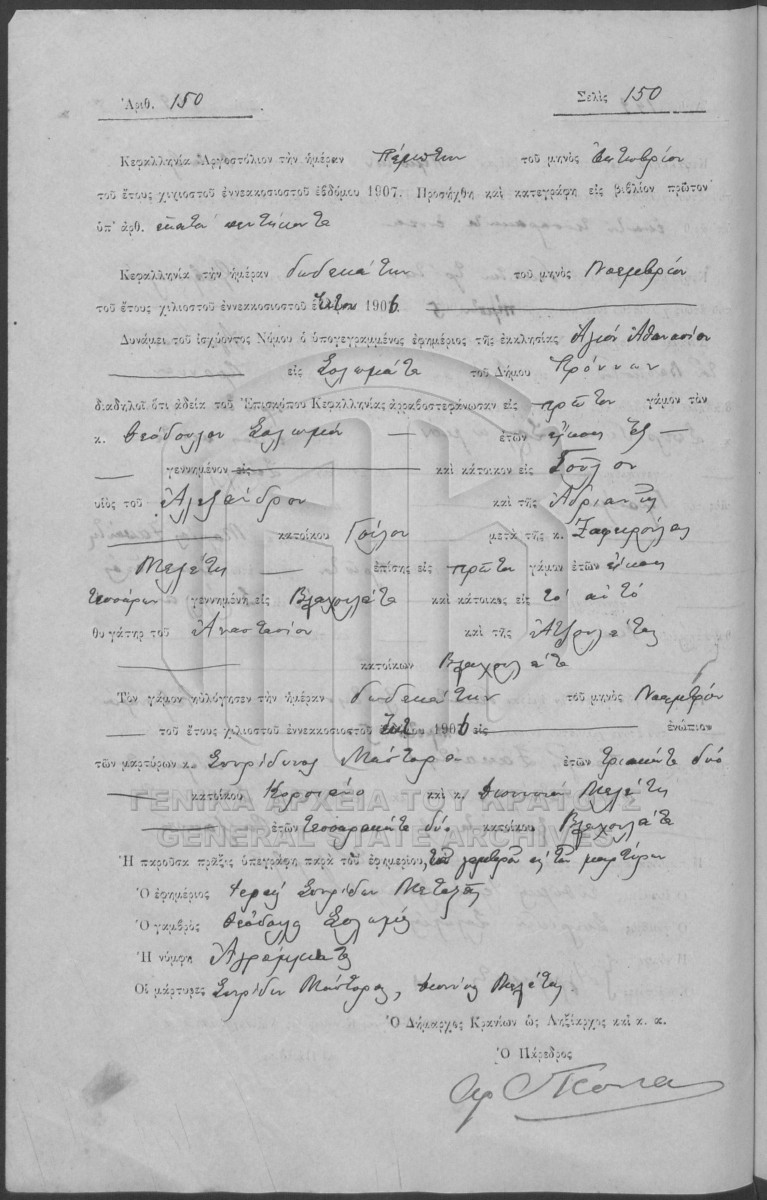 Ἀριθ. 150
Σελὶς 150
Κεφαλληνία Ἀργοστόλιον τὴν ἡμέραν πέμπτην τοῦ μηνὸς Ὀκτωβρίου
τοῦ ἔτους χιλιοστοῦ ἐννεακοσιοστοῦ ἑβδόμου 1907. Προσήχθη καὶ κατεγράφη εἰς βιβλίον πρῶτον
ὑπ' ἀρθ. ἑκατὸ πεντήκοντα
Κεφαλληνία τὴν ἡμέραν δωδεκάτην τοῦ μηνὸς Νοεμβρίου
τοῦ ἔτους χιλιοστοῦ ἐννεακοσιοστοῦ ἕκτου 1906
Δυνάμει τοῦ ἰσχύοντος Νόμου ὁ ὑπογεγραμμένος ἐφημέριος τῆς ἐκκλησίας Ἁγίου Ἀθανασίου
εἰς Σολωμάτα τοῦ Δήμου Πρόννων
διαδηλοῖ ὅτι ἀδείᾳ τοῦ Ἐπισκόπου Κεφαλληνίας ἀρραβοστεφάνωσαν εἰς πρῶτον γάμον τὸν
κ. Θεόδουλον Σολωμόν ἐτῶν εἴκοσι ἓξ
γεννημένον εἰς καὶ κάτοικον εἰς
υἱὸς τοῦ Ἀλεξάνδρου καὶ τῆς Ἀδριανῆς
κατοίκου μετὰ τῆς κ. Ζαφειρούλας
Μελέτη ἐπίσης εἰς πρῶτον γάμον ἐτῶν εἴκοσι
τεσσάρων γεννημένη εἰς Βλαχουλάτα καὶ κάτοικος εἰς τὸ αὐτό
θυγάτηρ τοῦ Ἀναστασίου καὶ τῆς
κατοίκων Βλαχουλάτα
Τὸν γάμον ηὐλόγησεν τὴν ἡμέραν δωδεκάτην τοῦ μηνὸς Νοεμβρίου
τοῦ ἔτους χιλιοστοῦ ἐννεακοσιοστοῦ ἕκτου 1906 εἰς ἐνώπιον
τῶν μαρτύρων κ. Σπυρίδωνος Μάστορα ἐτῶν τριάκοντα δύο
κατοίκου καὶ κ. Διονυσίου Μελέτη
ἐτῶν τεσσαράκοντα δύο κατοίκου Βλαχουλάτα
Ἡ παροῦσα πρᾶξις ὑπεγράφη παρὰ τοῦ ἐφημερίου, τοῦ γαμβροῦ καὶ τῶν μαρτύρων
Ὁ ἐφημέριος Ἱερεὺς Σπυρίδων Μεταξᾶς
Ὁ γαμβρὸς Θεόδουλος Σολωμός
Ἡ νύμφη Ἀγράμματος
Οἱ μάρτυρες Σπυρίδων Μάστορας, Διονύσιος Μελέτης
Ὁ Δήμαρχος Κρανίων ὡς Ληξίαρχος καὶ κ. α.
Ὁ Πάρεδρος
ΓΕΝΙΚΑ ΑΡΧΕΙΑ ΤΟΥ ΚΡΑΤΟΥΣ
GENERAL STATE ARCHIVES